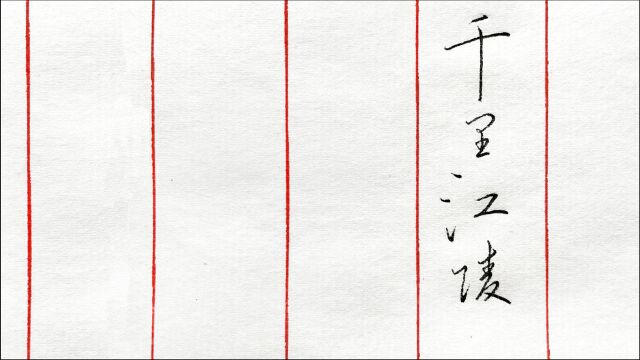 千里江陵